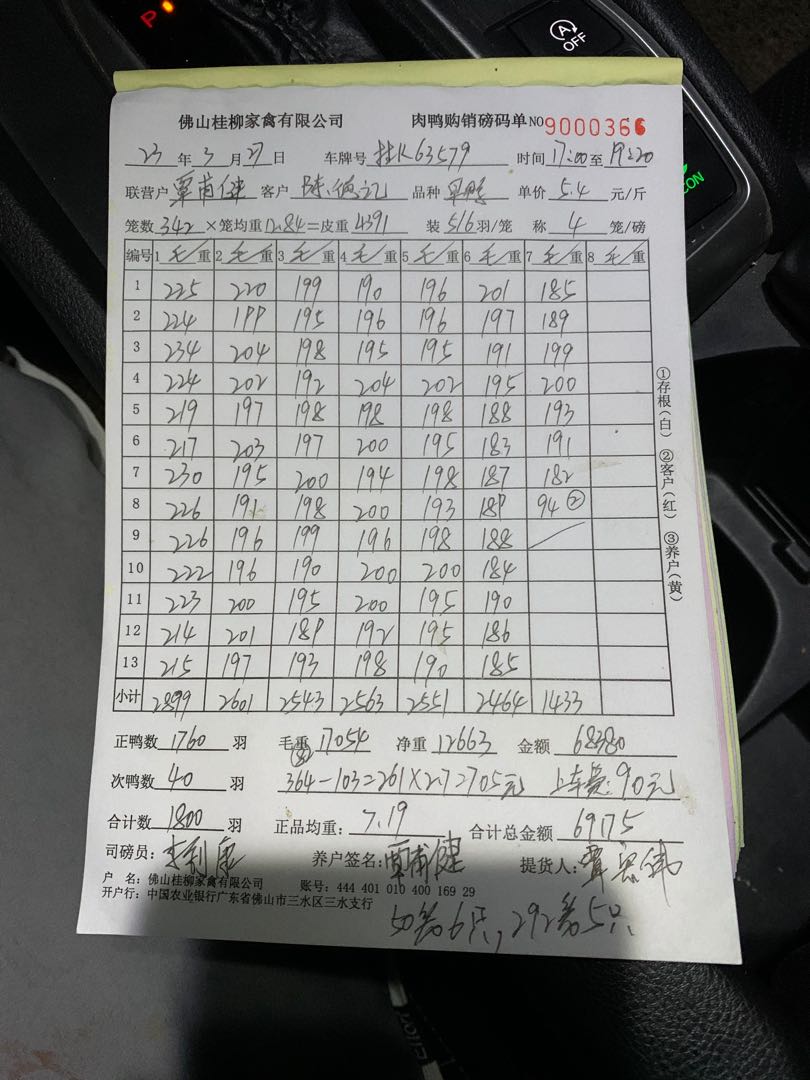 P
A OFF
佛山桂柳家禽有限公司 肉鸭购销磅码单NO9000366
23年3月27日 车牌号 桂K63579 时间17:00至19:20
联营户 覃甫健 客户 陈德记 品种 单价5.4元/斤
笼数342×笼均重12.84=皮重4391 装5/6羽/笼 称4笼/磅
编号 1毛/重 2毛/重 3毛/重 4毛/重 5毛/重 6毛/重 7毛/重 8毛/重
1 225 220 199 190 196 201 185
2 224 199 195 196 196 197 189
3 234 204 198 195 195 191 199
4 224 202 192 204 202 195 200
5 219 197 198 198 198 188 193
6 217 203 197 200 195 183 191
7 230 195 200 194 198 187 182
8 226 191 198 200 193 189 94②
9 226 196 199 196 198 188
10 222 196 190 200 200 184
11 223 200 195 200 195 190
12 214 201 189 192 195 186
13 215 197 193 198 190 185
小计 2899 2601 2543 2563 2551 2464 1433
①存根(白) ②客户(红) ③养户(黄)
正鸭数1760羽 毛重17054 净重12663 金额68380
次鸭数40羽 364-103=261×2.7=705元 上车费:90元
合计数1800羽 正品均重:7.19 合计总金额69175
司磅员: 养户签名:覃甫健 提货人:
户 名:佛山桂柳家禽有限公司 账号:444 401 010 400 169 29
开户行:中国农业银行广东省佛山市三水区三水支行
50笼6只,292笼5只
CON